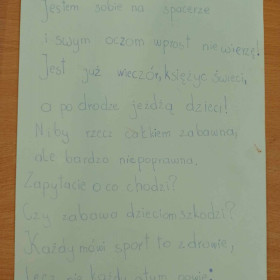 Jestem sobie na spacerze
i swym oczom wprost nie wierzę!
Jest już wieczór, księżyc świeci,
a po drodze jeżdżą dzieci!
Niby rzecz całkiem zabawna,
ale bardzo niepoprawna.
Zapytacie o co chodzi?
Czy zabawa dzieciom szkodzi?
Każdy mówi sport to zdrowie,
Lecz nie każdy o tym powie!